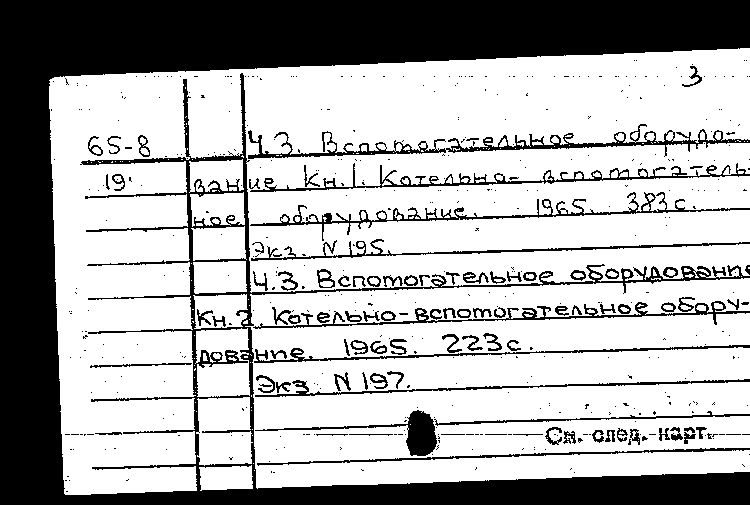 3
65-8 Ч.3. Вспомогательное оборудо-
19 вание. Кн.1. Котельно- вспомогатель-
ное оборудование. 1965. 383с.
Экз. N 195.
Ч.3. Вспомогательное оборудование
Кн.2. Котельно-вспомогательное обору-
дование. 1965. 223с.
Экз. N 197.
См. след. карт.